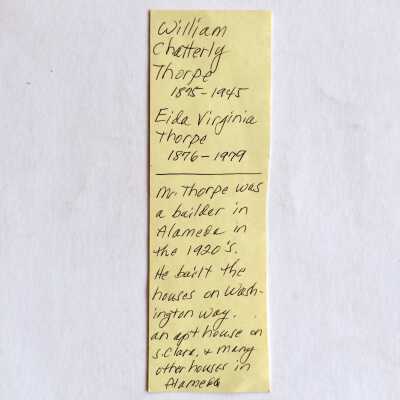 William
Chatterly
Thorpe
1875-1945
Eida Virginia
Thorpe
1876-1979
Mr. Thorpe was
a builder in
Alameda in
the 1920's.
He built the
houses on Wash-
ington Way.
an apt house on
S. Clara, & many
other houses in
Alameda